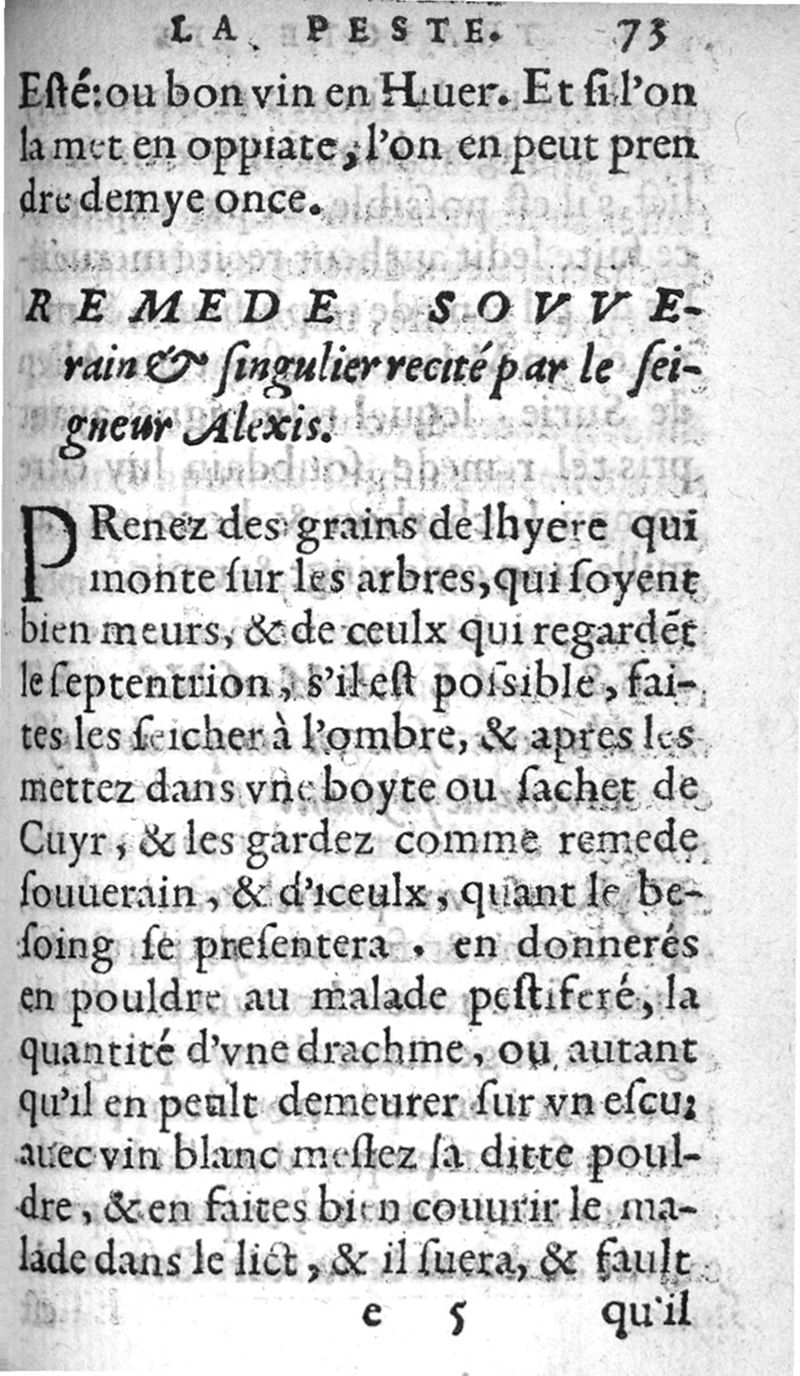 LA PESTE. 73
Eſté: ou bon vin en Hiuer. Et ſi l'on
la met en oppiate, l'on en peut pren
dre demye once.
REMEDE SOVVE-
rain & ſingulier recité par le ſei-
gneur Alexis.
PRenez des grains de lhyere qui
monte ſur les arbres, qui ſoyent
bien meurs, & de ceulx qui regardēt
le ſeptentrion, s'il eſt poſsible, fai-
tes les ſeicher à l'ombre, & apres les
mettez dans vne boyte ou ſachet de
Cuyr, & les gardez comme remede
ſouuerain, & d'iceulx, quant le be-
ſoing ſe preſentera . en donnerés
en pouldre au malade peſtiferé, la
quantité d'vne drachme, ou autant
qu'il en peult demeurer ſur vn eſcu;
auec vin blanc meſlez ſa ditte poul-
dre, & en faites bien couurir le ma-
lade dans le lict, & il ſuera, & fault
e 5 qu'il